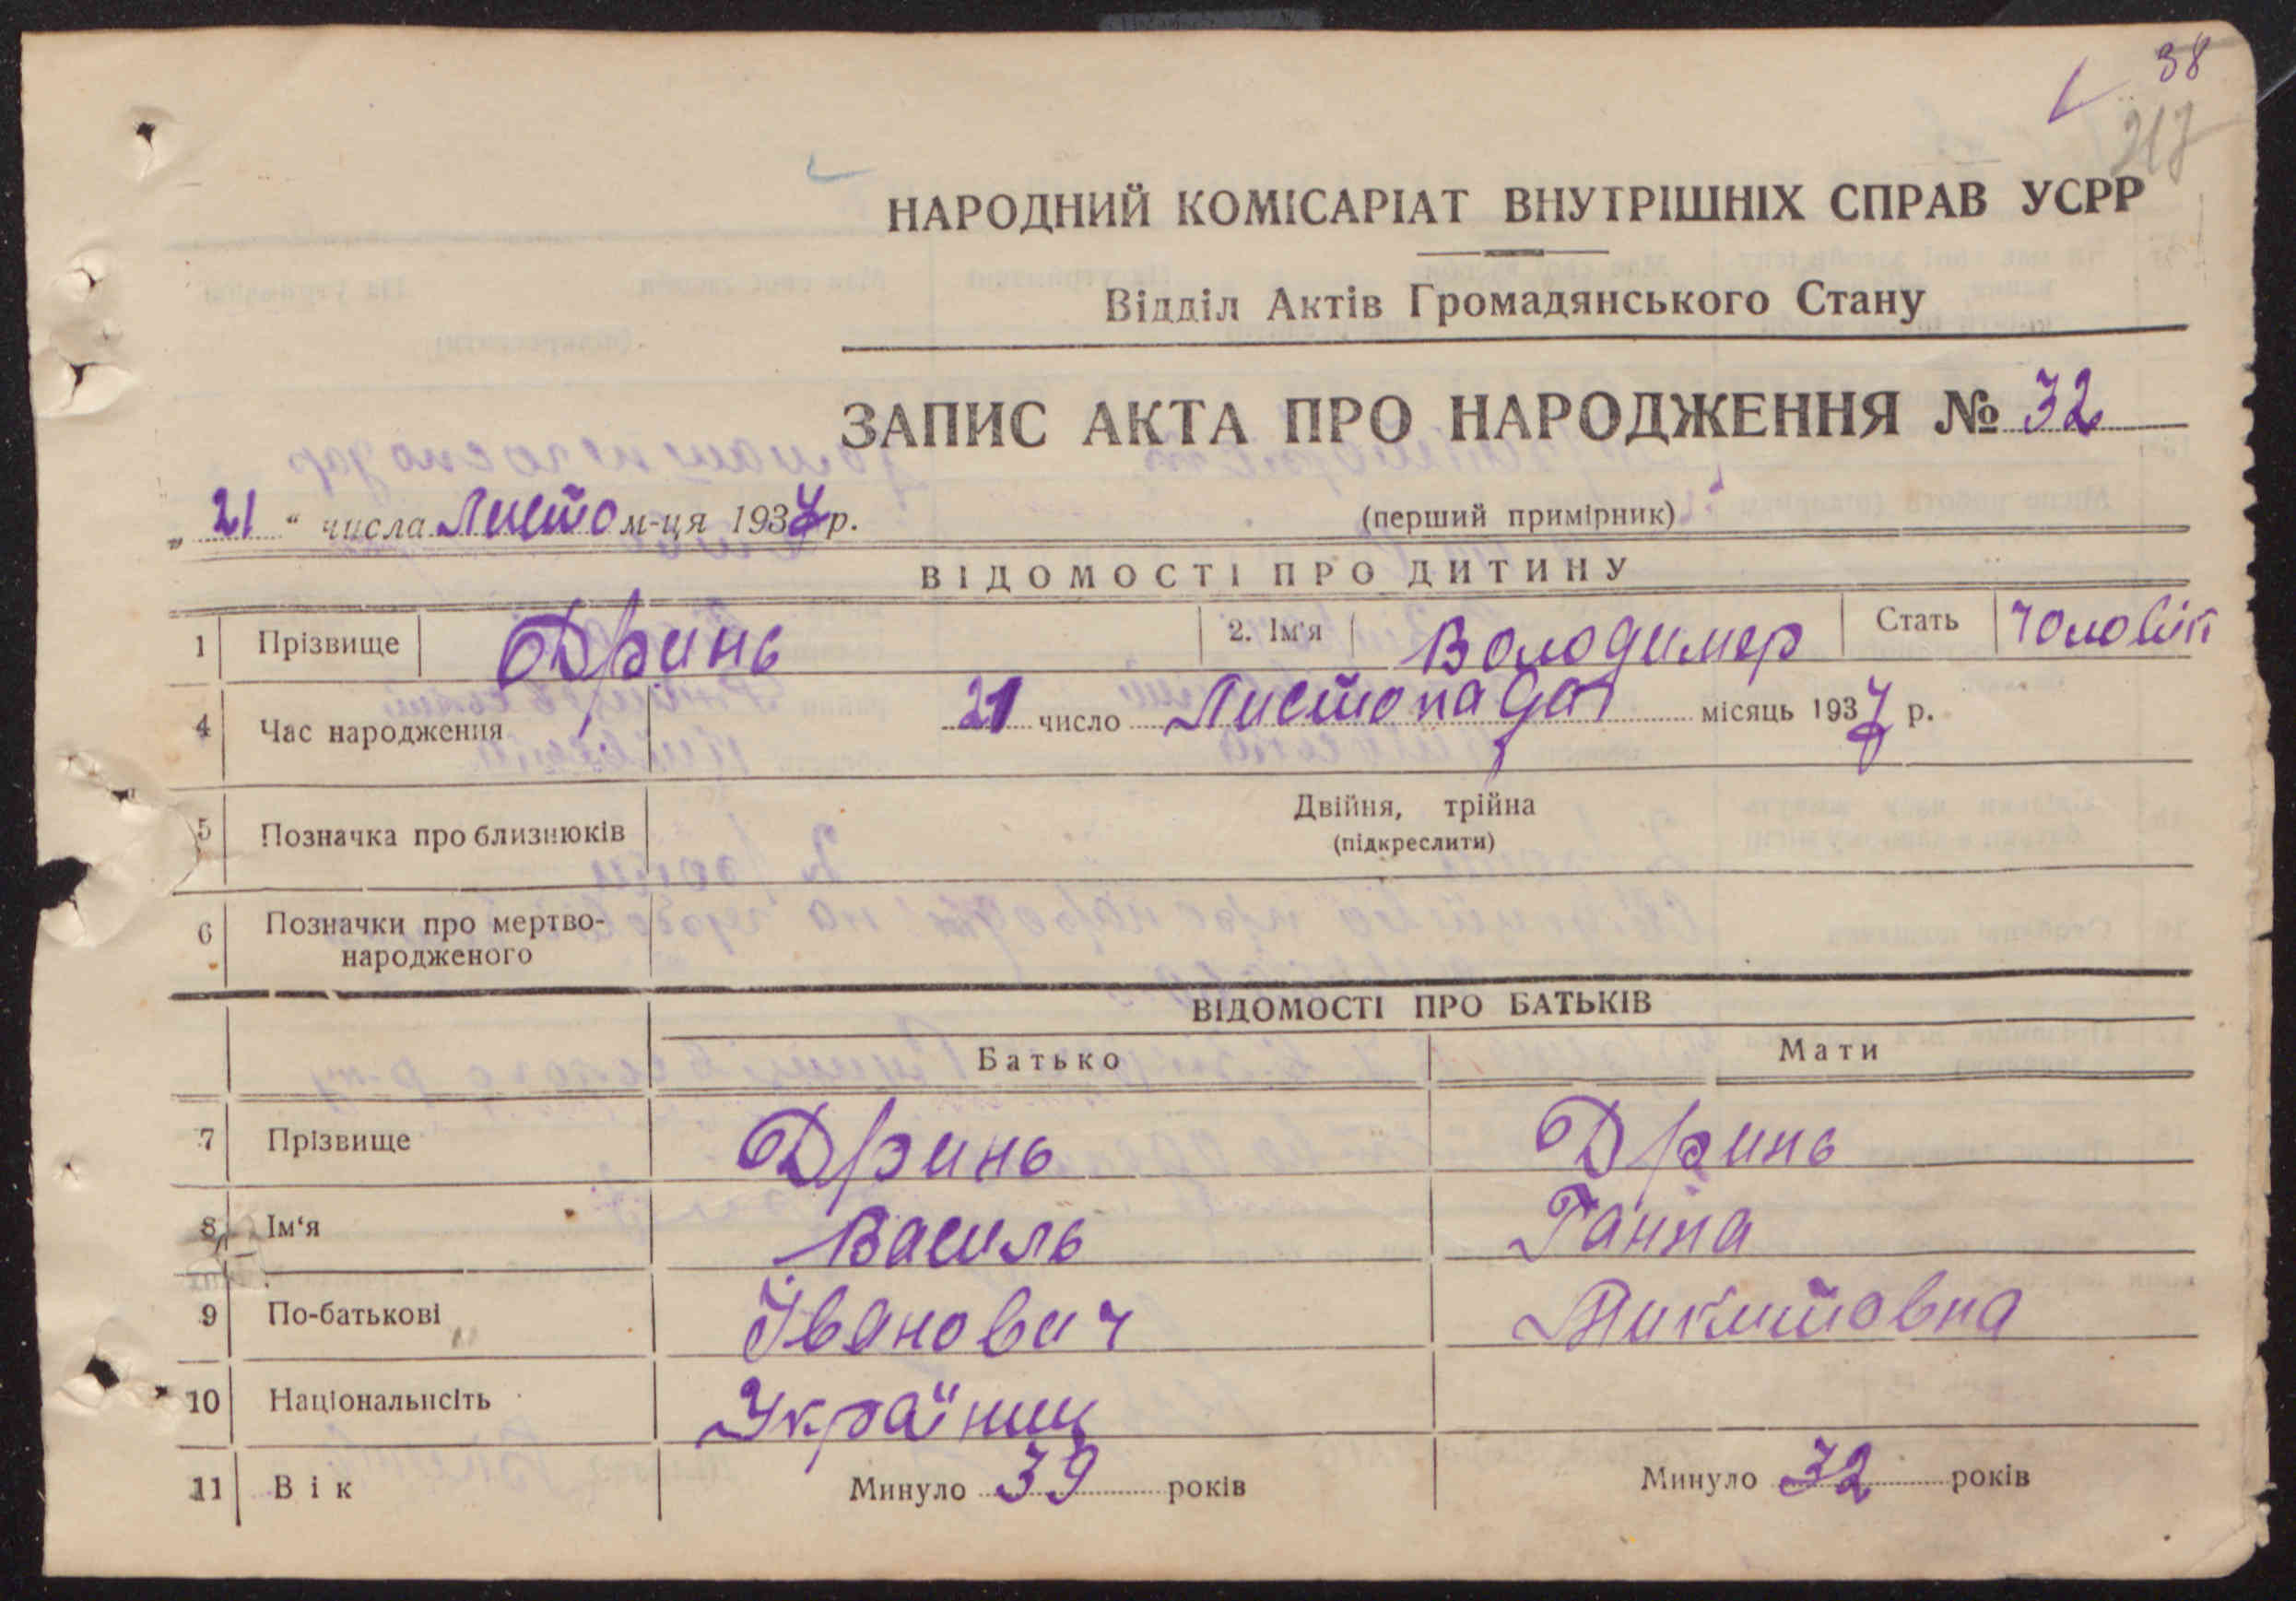 38
217
НАРОДНИЙ КОМІСАРІАТ ВНУТРІШНІХ СПРАВ УСРР
Відділ Актів Громадянського Стану
ЗАПИС АКТА ПРО НАРОДЖЕННЯ № 32
„ 21 “ числа Листо м-ця 1937 р. (перший примірник)
ВІДОМОСТІ ПРО ДИТИНУ
1 Прізвище Дринь 2. Ім'я Володимер Стать Чоловіч
4 Час народження 21 число Листопада місяць 1937 р.
5 Позначка про близнюків Двійня, трійна
(підкреслити)
6 Позначки про мертво-
народженого
ВІДОМОСТІ ПРО БАТЬКІВ
Батько Мати
7 Прізвище Дринь Дринь
8 Ім‘я Василь Ганна
9 По-батькові Іванович Микитовна
10 Національність Українці
11 Вік Минуло 39 років Минуло 32 років